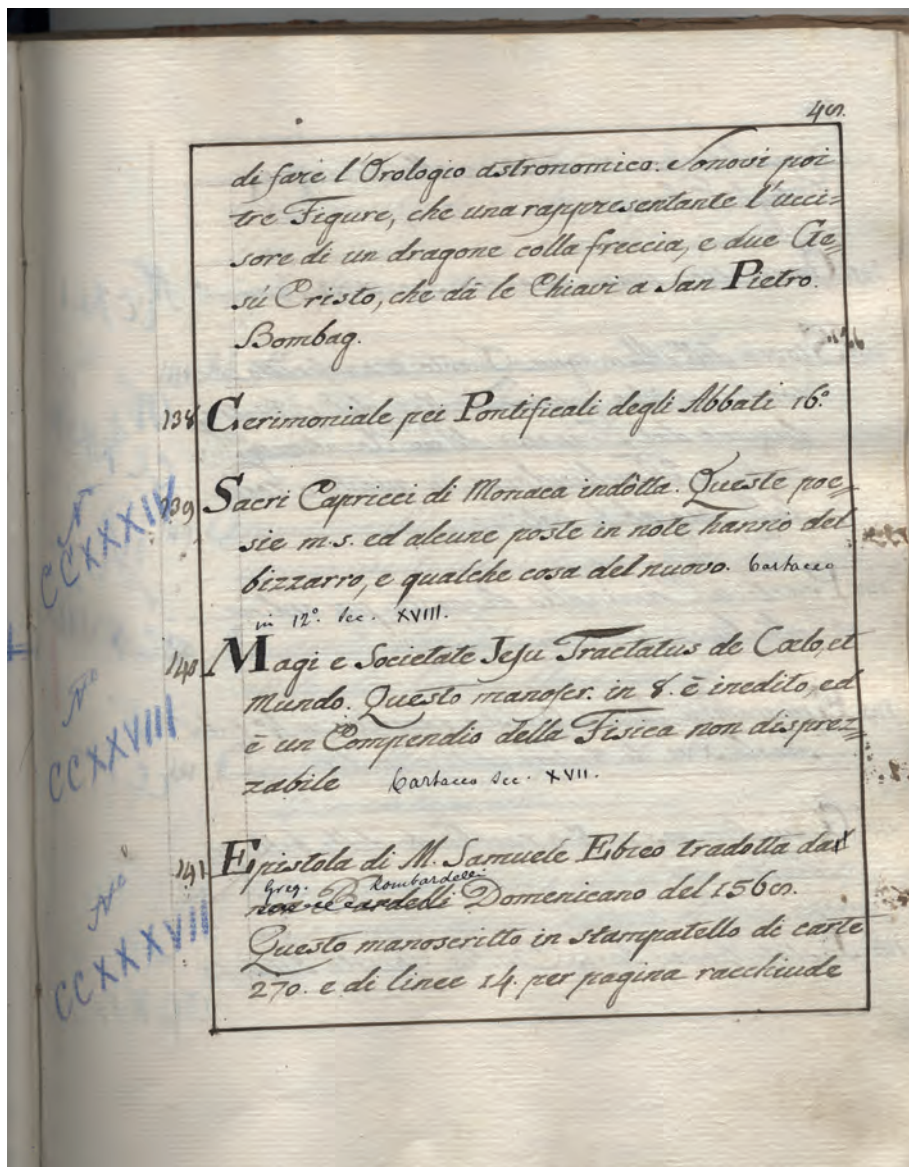 45.
di fare l'Orologio astronomico. Sonovi poi
tre Figure, che una rappresentante l'ucci=
sore di un dragone colla freccia, e due Ge=
sù Cristo, che dà le Chiavi a San Pietro.
Bombag.
138 Cerimoniale pei Pontificali degli Abbati 16°
139 Sacri Capricci di Monaca indòtta. Queste poe=
sie m.s. ed alcune poste in note hanno del
bizzarro, e qualche cosa del nuovo. Cartaceo
in 12°. Sec. XVIII.
N°
CCXXXIV
140 Magi e Societate Jesu Tractatus de Cœlo, et
Mundo. Questo manoscr. in 8. è inedito, ed
è un Compendio della Fisica non disprez=
zabile Cartaceo Sec. XVII.
N°
CCXXVIII
141 Epistola di M. Samuele Ebreo tradotta da
Greg. Lombardelli
Domenicano del 1565.
Questo manoscritto in stampatello di carte
270. e di linee 14. per pagina racchiude
N°
CCXXXVII